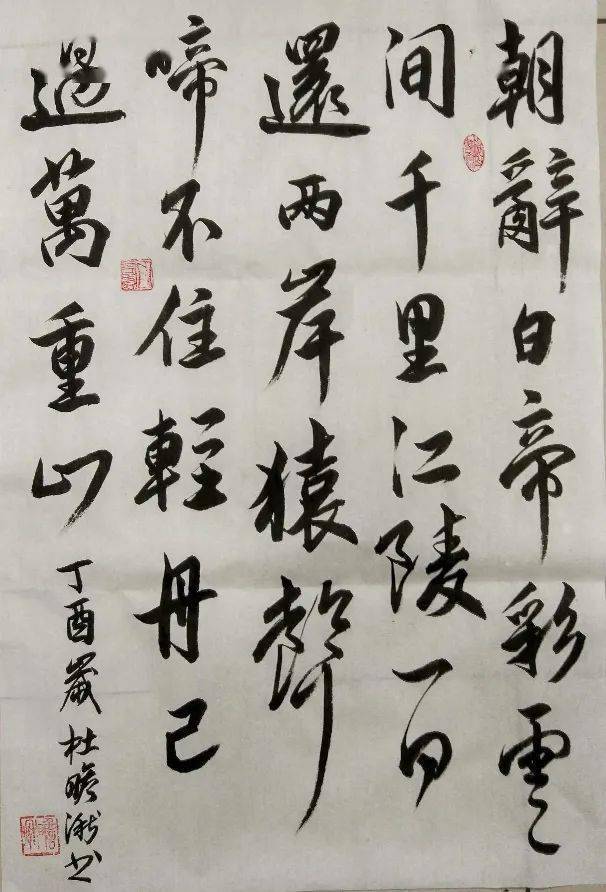 朝辭白帝彩雲
間千里江陵一日
還两岸猿聲
啼不住輕舟已
過萬重山
丁酉歲杜書